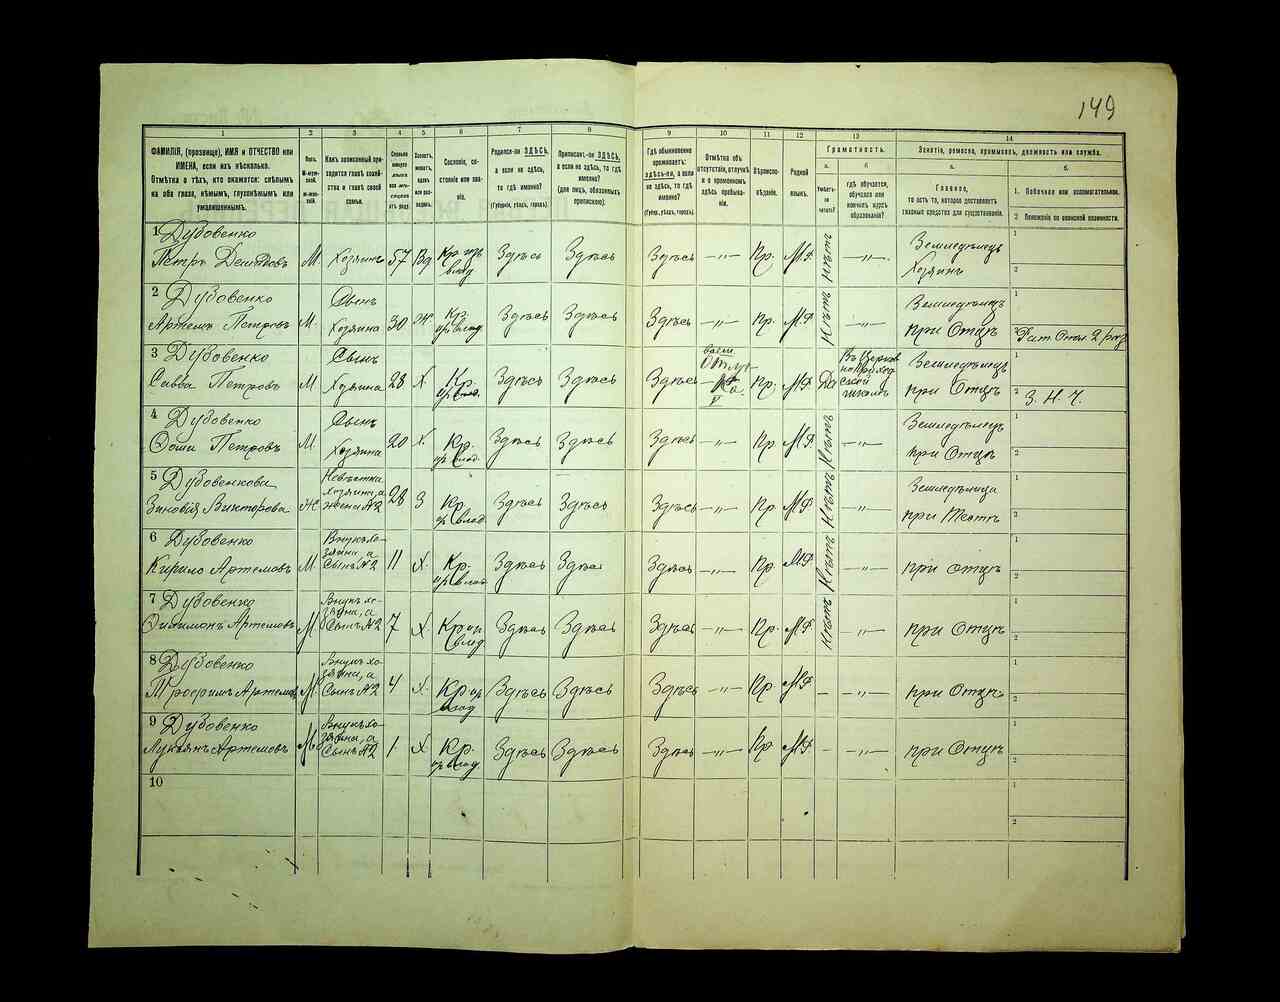 149
1 2 3 4 5 6 7 8 9 10 11 12 13 14
ФАМИЛІЯ, (прозвище), ИМЯ и ОТЧЕСТВО или
ИМЕНА, если ихъ нѣсколько.
Отмѣтка о тѣхъ, кто окажется: слѣпымъ
на оба глаза, нѣмымъ, глухонѣмымъ или
умалишеннымъ.
Полъ.
М-мужской.
Ж-женскій.
Какъ записанный приходится
главѣ хозяйства
и главѣ своей
семьи.
Сословіе, состояніе
или званіе.
Родился-ли ЗДѢСЬ,
а если не здѣсь,
то гдѣ именно?
(Губернія, уѣздъ, городъ).
Приписанъ-ли ЗДѢСЬ,
а если не здѣсь, то гдѣ
именно?
(для лицъ, обязанныхъ
припискою).
Гдѣ обыкновенно
проживаетъ:
ЗДѢСЬ-ли, а если
не здѣсь, то гдѣ
именно?
(Губерн., уѣздъ, городъ).
Отмѣтка объ
отсутствіи, отлучкѣ
и о временномъ
здѣсь пребываніи.
Вѣроисповѣданіе.
Родной
языкъ.
Грамотность.
а. б.
Умѣетъ-ли
читать?
гдѣ обучается,
обучался или
кончилъ курсъ
образованія?
Занятіе, ремесло, промыселъ, должность или служба.
а. б.
Главное,
то есть то, которое доставляетъ
главныя средства для существованія.
1. Побочное или вспомогательное.
2 Положеніе по воинской повинности.
1 Дубовенко
Петръ Демидовъ М. Хозяинъ 57 Вд Кр. изъ влад Здѣсь Здѣсь Здѣсь —„— Пр. М.Р. Нѣтъ —„— Земледѣлецъ Хозяинъ 1 2
2 Дубовенко
Артемъ Петровъ М. Сынъ Хозяина 30 Ж Кр. изъ влад. Здѣсь Здѣсь Здѣсь —„— Пр. М.Р. Нѣтъ —„— Земледѣлецъ при Отцѣ 1 2 Рат. Опол. 2 раз
3 Дубовенко
Савва Петровъ М. Сынъ Хозяина 28 Х Кр. Здѣсь Здѣсь Здѣсь Пр. М.Р. Да Въ Церковно-приходской школѣ Земледѣлецъ при Отцѣ 2 З. Н. Ч.
4 Дубовенко
Ѳома Петровъ М. Сынъ Хозяина 20 Х. Кр. изъ влад. Здѣсь Здѣсь Здѣсь —„— Пр М.Р Нѣтъ —„— Земледѣлецъ при Отцѣ 1 2
5 Дубовенкова
Зиновія Викторова Ж Невѣстка хозяина, а жена №2 28 З Кр. изъ влад. Здѣсь Здѣсь Здѣсь —„— Пр М.Р Нѣтъ —„— Земледѣлица при 1 2
6 Дубовенко
Кирило Артемовъ М. Внукъ хозяина а Сынъ №2 11 Х. Кр. изъ влад. Здѣсь Здѣсь Здѣсь —„— Пр М.Р. Нѣтъ —„— при отцѣ 1 2
7 Дубовенко
Филимонъ Артемовъ М Внукъ хозяина, а Сынъ №2 7 Х Кр изъ влад. Здѣсь Здѣсь Здѣсь —„— Пр. М.Р. Нѣтъ —„— при Отцѣ 1 2
8 Дубовенко
Трофимъ Артемовъ М Внукъ хозяина, а Сынъ №2 4 Х. Кр изъ влад Здѣсь Здѣсь Здѣсь —„— Пр М.Р – —„— при Отцѣ 1 2
9 Дубовенко
Лукьянъ Артемовъ М Внукъ хозяина, а Сынъ №2 1. Х Кр. изъ влад. Здѣсь Здѣсь Здѣсь —„— Пр М.Р. – —„— при Отцѣ 1 2
10 1 2